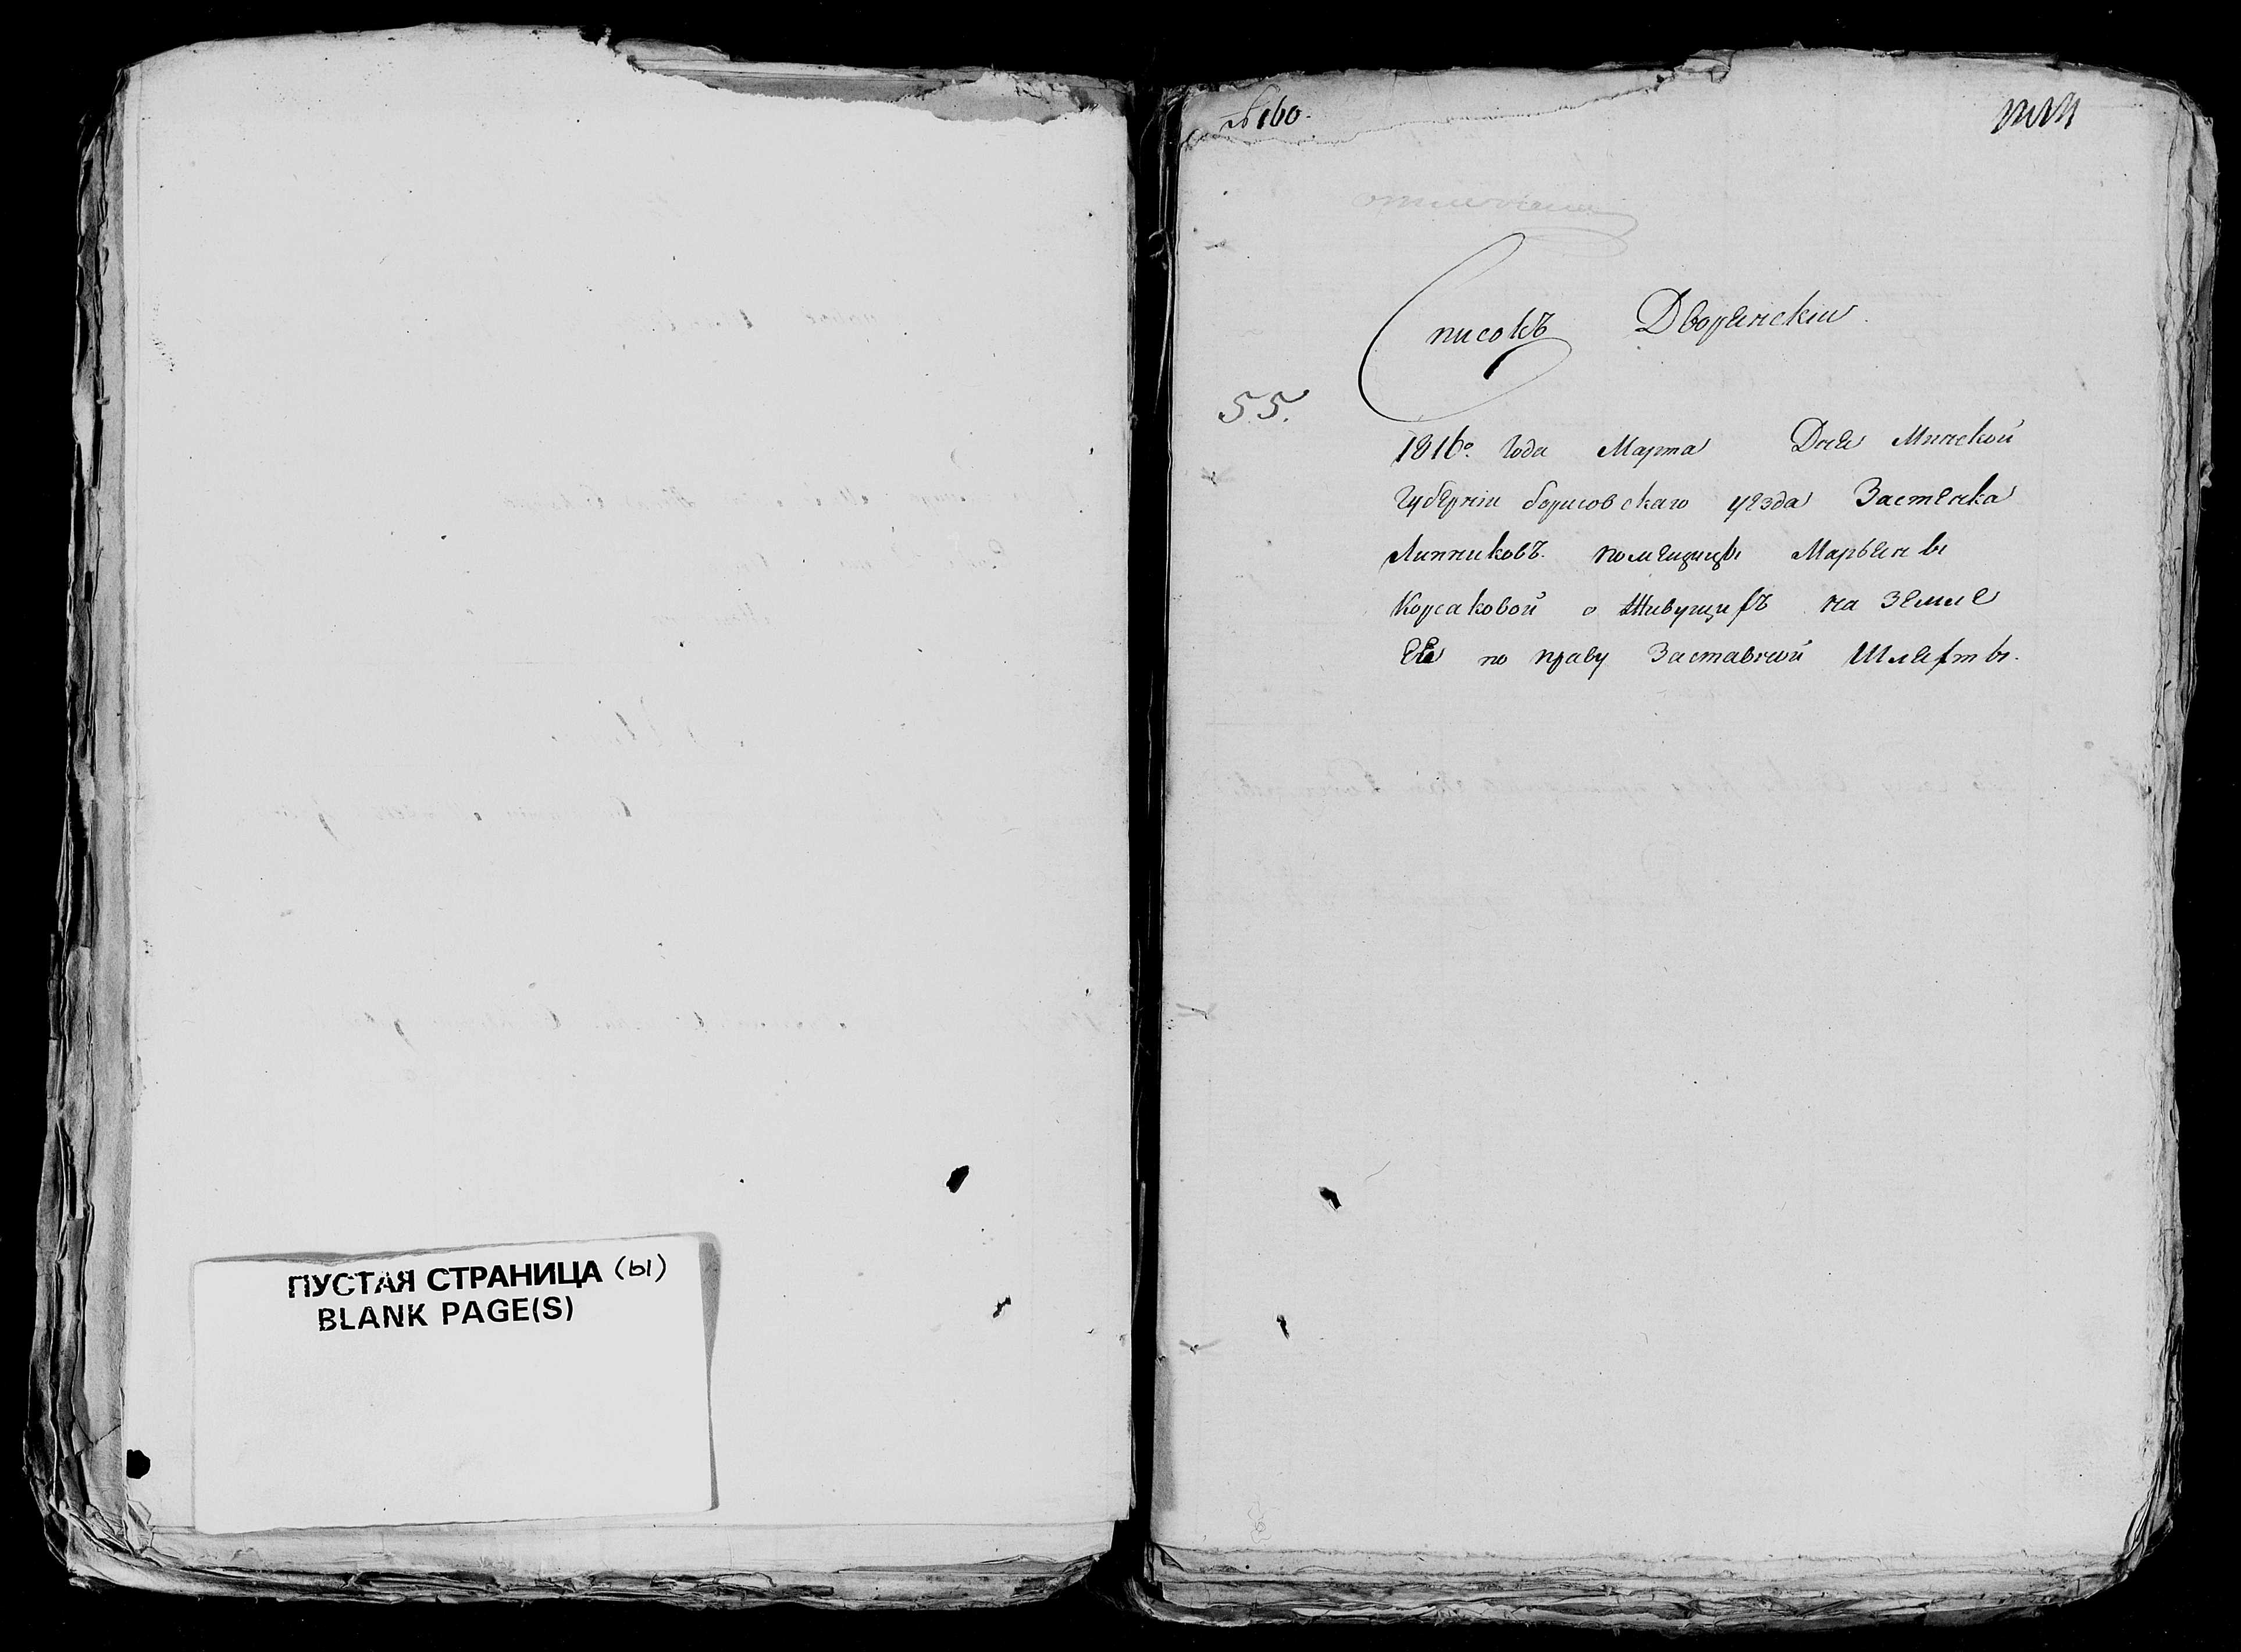 ПУСТАЯ СТРАНИЦА (ы)
BLANK PAGE(S)
№ 160.
Списокъ Дворянскіи
55.
1816го Года Марта Дня Минской
Губерніи борисовскаго уезда Застенка
Липниковъ помещицы Марьяны
Корсаковой о Живущихъ на Земле
Ея по праву Заставной Шляхты.